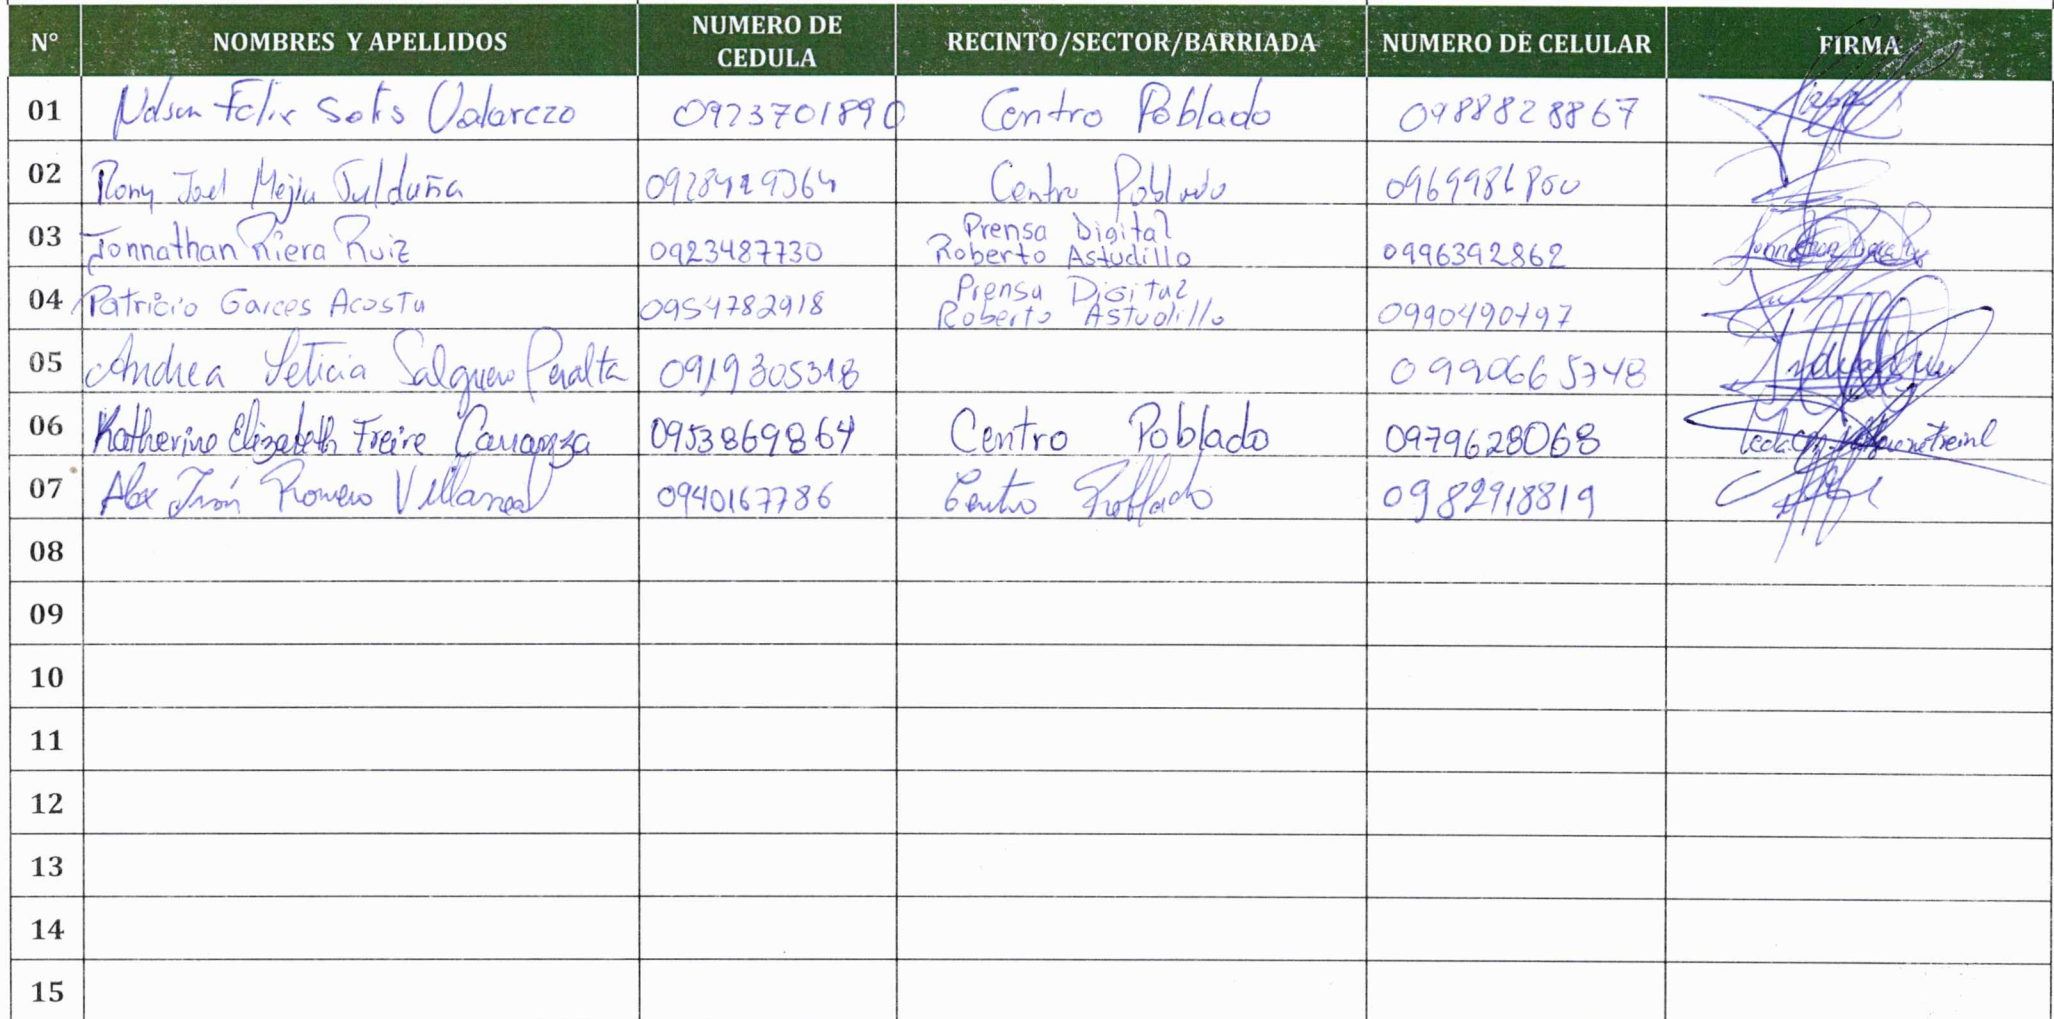 N° NOMBRES Y APELLIDOS NUMERO DE CEDULA RECINTO/SECTOR/BARRIADA NUMERO DE CELULAR FIRMA
01 Nelson Felix Solis Valarezo 0923701890 Centro Poblado 0988828867
02 Rony Joel Mejia 0928429364 Centro Poblado
03 Jonnathan Riera Ruiz 0923487730 Prensa Digital Roberto Astudillo 0996392862 Jonnathan Riera
04 Patricio Garces Acosta 0954782918 Prensa Digital Roberto Astudillo 0990490197
05 Andrea Leticia Salguero Peralta 0919305318 0990665748
06 Katherine Elizabeth Freire Carranza 0953869864 Centro Poblado 0979628068
07 Alex Iván Romero Villarreal 0940167786 Centro Poblado 0982918819
08
09
10
11
12
13
14
15